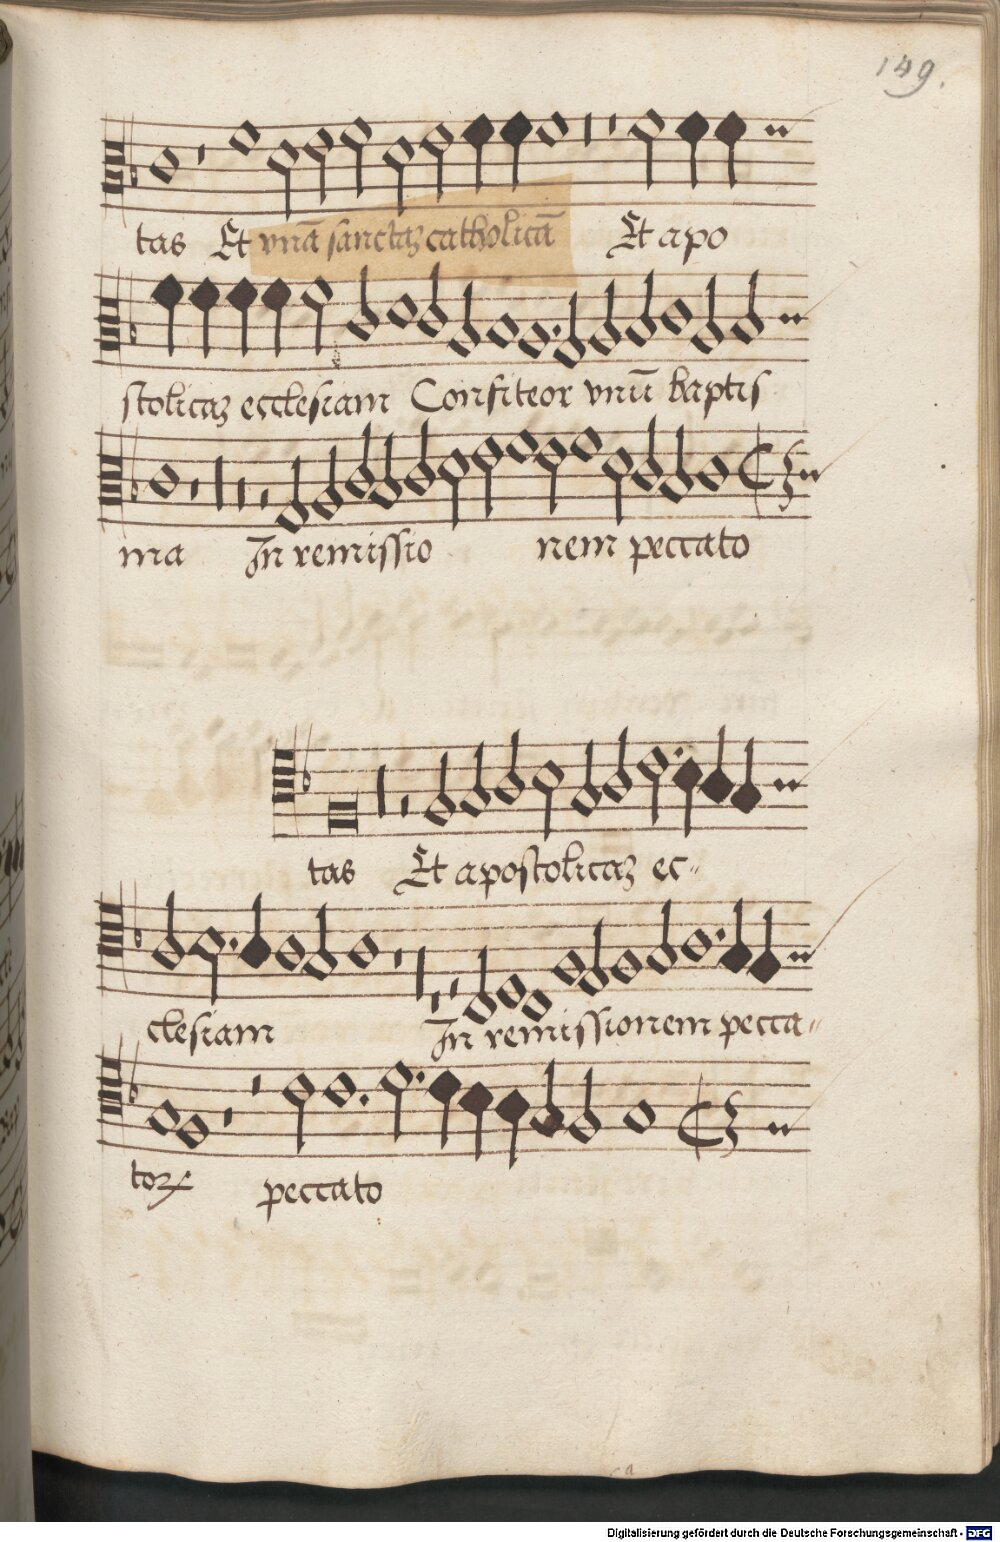 149.
tas Et vnā sanctaȝ catholicā Et apo
stolicaȝ ecclesiam Confiteor vnū baptis
ma In remissio nem peccato
tas Et apostolicaȝ ec-
clesiam In remissionem pecca-
toꝝ peccato
Digitalisierung gefördert durch die Deutsche Forschungsgemeinschaft - DFG